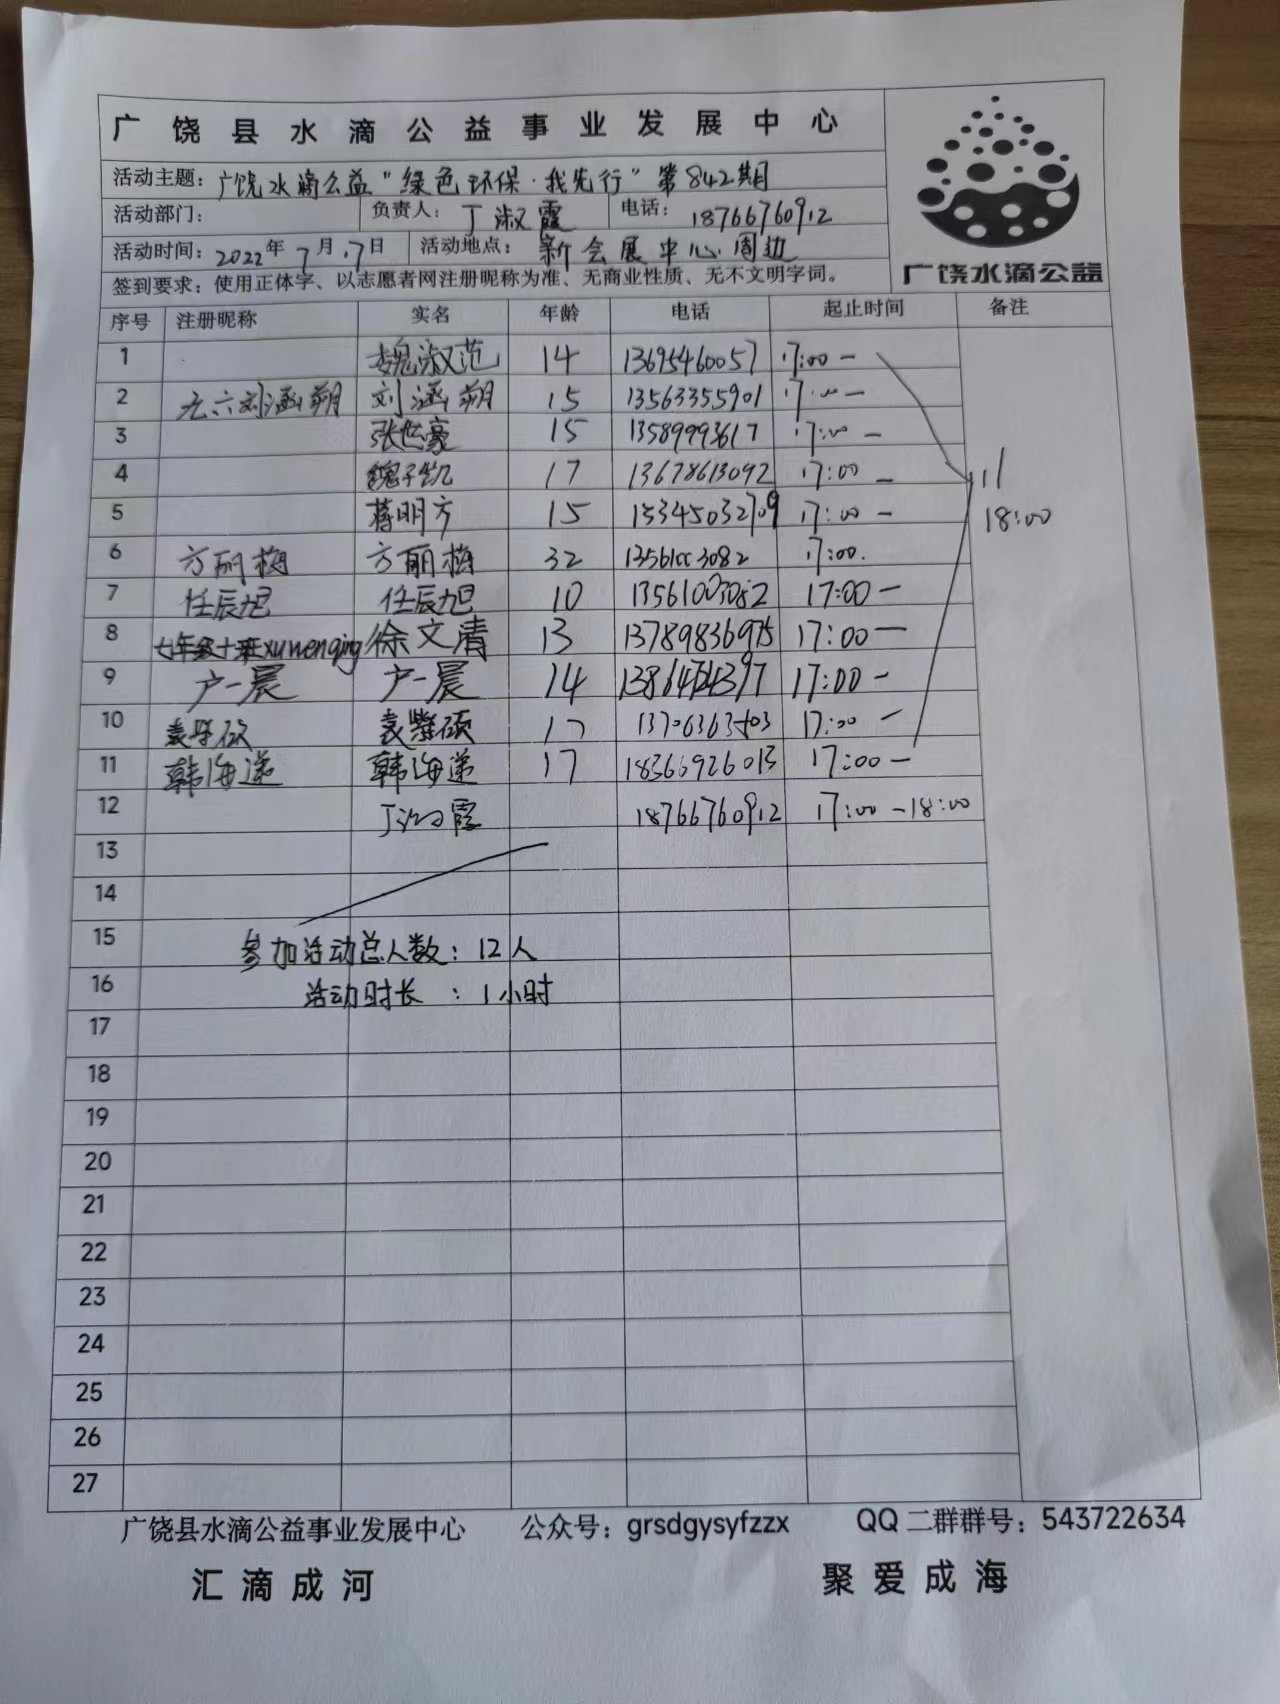 广饶县水滴公益事业发展中心
活动主题：广饶水滴公益“绿色环保·我先行”第842期
活动部门： 负责人：丁淑霞 电话：18766760912
活动时间：2022年7月17日 活动地点：新会展中心周边
签到要求：使用正体字、以志愿者网注册昵称为准、无商业性质、无不文明字词。
广饶水滴公益
序号 注册昵称 实名 年龄 电话 起止时间 备注
1 魏淑范 14 13695460057 17:00-
2 九六刘涵朔 刘涵朔 15 13563355901 17:00-
3 张世豪 15 13589993617 17:00-
4 魏子凯 17 13678613092 17:00-
5 蒋明方 15 15345032709 17:00-
18:00
6 方丽梅 方丽梅 32 13561003082 17:00.
7 任辰旭 任辰旭 10 13561003082 17:00-
8 七年级十班xuwenqing 徐文清 13 13789836975 17:00-
9 户一晨 户一晨 14 17:00-
10 袁肇硕 袁肇硕 17 17:00-
11 韩海递 韩海递 17 18366926013 17:00-
12 丁淑霞 18766760912 17:00-18:00
13
14
15 参加活动总人数：12人
16 活动时长：1小时
17
18
19
20
21
22
23
24
25
26
27
广饶县水滴公益事业发展中心 公众号：grsdgysyfzzx QQ二群群号：543722634
汇滴成河 聚爱成海